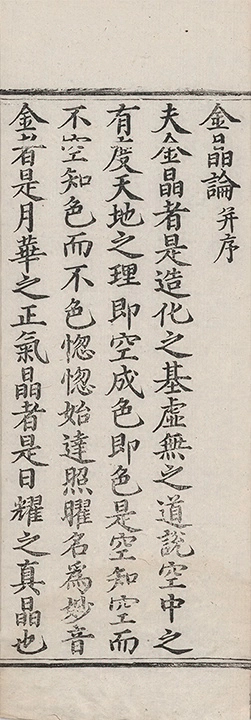 金晶論并序
夫金晶者是造化之基虛無之道說空中之
有度天地之理即空成色即色是空知空而
不空知色而不色惚惚始達照曜名爲妙音
金者是月華之正氣晶者是日耀之真晶也